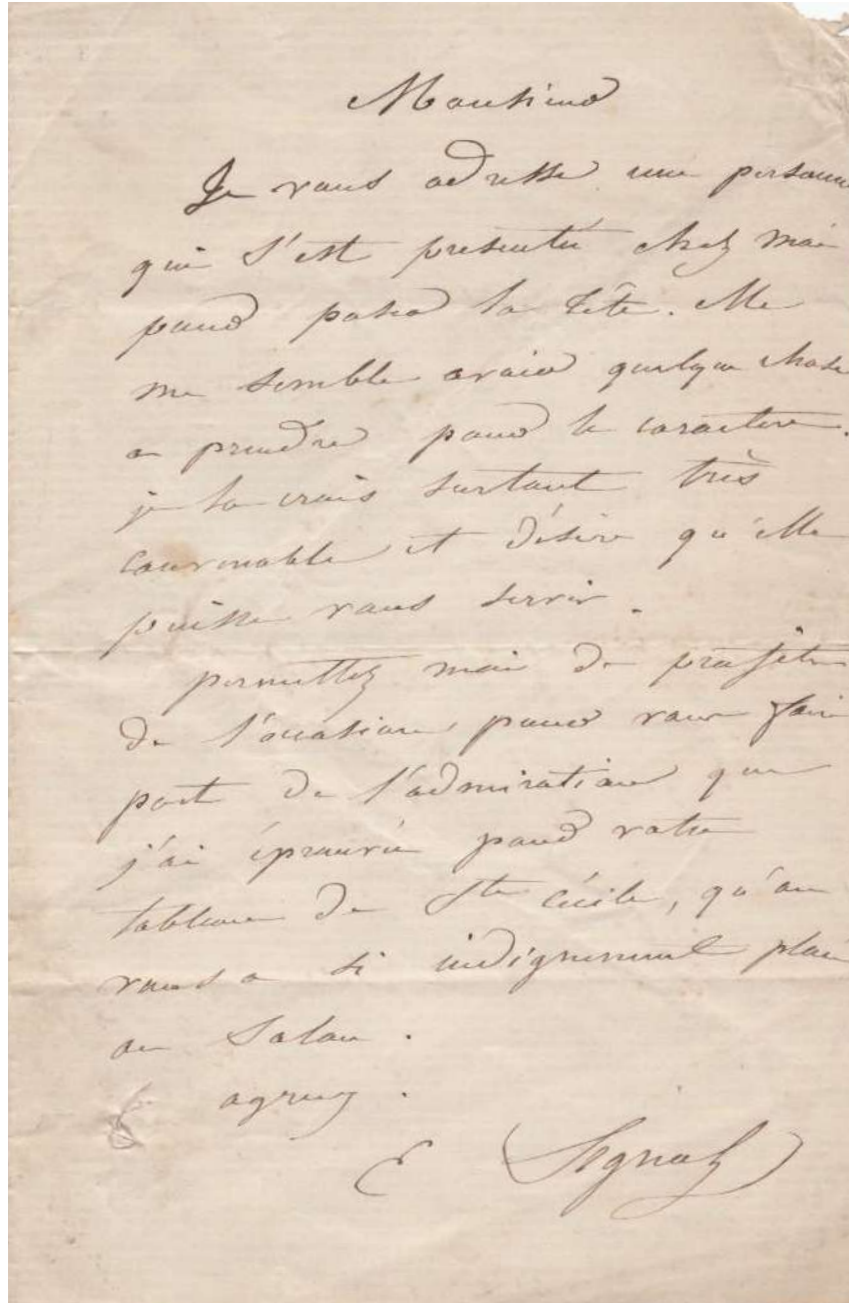 Monsieur
Je vous adresse une personne
qui s'est presenté chez moi
pour poser la tête. Elle
me semble avoir quelque chose
a prendre pour le caractere.
je la crois surtout très
convenable et désire qu'elle
puisse vous servir.
permettez moi de profiter
de l'occasion, pour vous faire
part de l'admiration que
j'ai éprouvée pour votre
tableau de Ste Cécile, qu'on
vous a si indignement placé
au Salon.
agreez.
E Signol